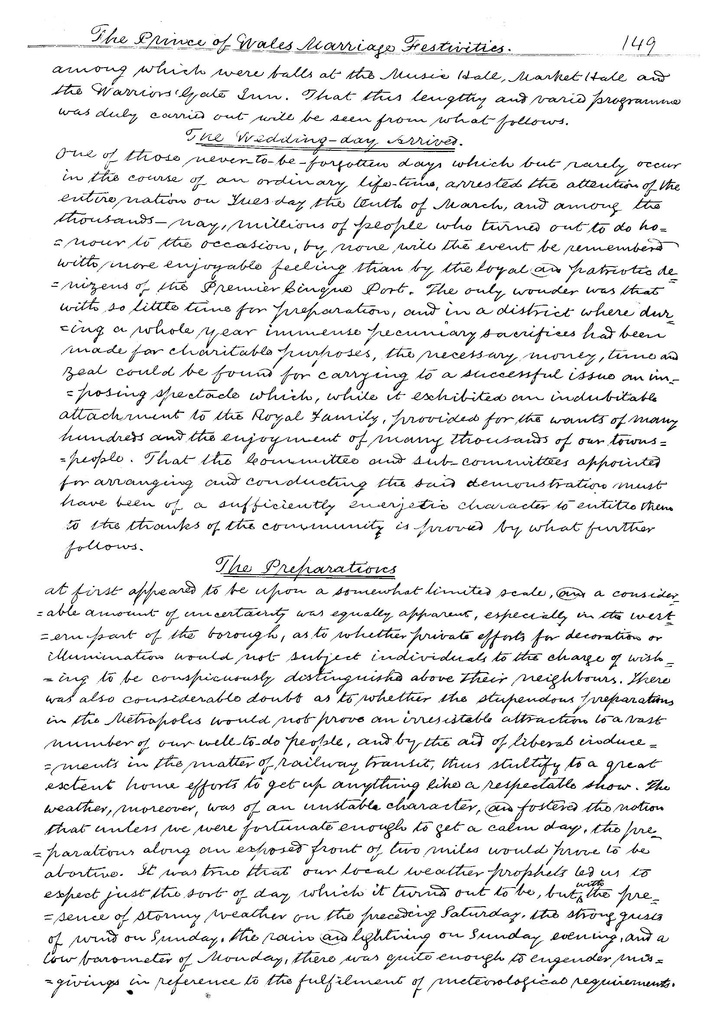 The Prince of Wales Marriage Festivities. 149
among which were balls at the Music Hall, Market Hall and
the Warriors' Gate Inn. That this lengthy and varied programme
was duly carried out will be seen from what follows.
The Wedding-day Arrived.
One of those never-to-be-forgotten days which but rarely occur
in the course of an ordinary life-time, arrested the attention of the
entire nation on Tuesday the tenth of March, and among the
thousands - nay, millions of people who turned out to do ho=
=nour to the occasion, by none will the event be rememberd
with more enjoyable feeling than by the loyal and patriotic de=
=nizens of the Premier Cinque Port. The only wonder was that
with so little time for preparation, and in a district where dur=
=ing a whole year immense pecuniary sacrifices had been
made for charitable purposes, the necessary money, time and
zeal could be found for carrying to a successful issue an im=
=posing spectacle which, while it exhibited an indubitable
attachment to the Royal Family, provided for the wants of many
hundreds and the enjoyment of many thousands of our towns=
=people. That the Committee and sub-committees appointed
for arranging and conducting the said demonstration must
have been of a sufficiently energetic character to entitle them
to the thanks of the community is proved by what further
follows.
The Preparations
at first appeared to be upon a somewhat limited scale, and a consider=
=able amount of uncertainty was equally apparent, especially in the west=
=ern part of the borough, as to whether private efforts for decoration or
illumination would not subject individuals to the charge of wish=
=ing to be conspicuously distinguished above their neighbours. There
was also considerable doubt as to whether the stupendous preparations
in the Metropolis would not prove an irresistable attraction to a vast
number of our well-to-do people, and by the aid of liberal induce=
=ments in the matter of railway transit, thus stultify to a great
extent home efforts to get up anything like a respectable show. The
weather, moreover, was of an unstable character, and fostered the notion
that unless we were fortunate enough to get a calm day, the pre=
=parations along an exposed front of two miles would prove to be
abortive. It was true that our local weather prophets led us to
expect just the sort of day which it turned out to be, but with the pre=
=sence of stormy weather on the preceding Saturday, the strong gusts
of wind on Sunday, the rain and lightning on Sunday evening, and a
low barometer of Monday, there was quite enough to engender mis=
=givings in reference to the fulfilment of meteorological requirements.